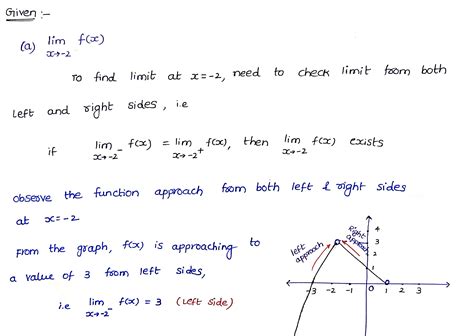 Given :-
(a) lim f(x)
x→-2
To find limit at x=-2, need to check limit from both
left and right sides, i.e
if lim f(x) = lim f(x), then lim f(x) exists
x→-2⁻ x→-2⁺ x→-2
observe the function approach from both left & right sides
at x=-2
From the graph, f(x) is approaching to
a value of 3 from left sides,
i.e lim f(x) = 3 (Left side)
x→-2⁻
left approach
Right approach
4
3
2
1
-3 -2 -1 0 1 2 3